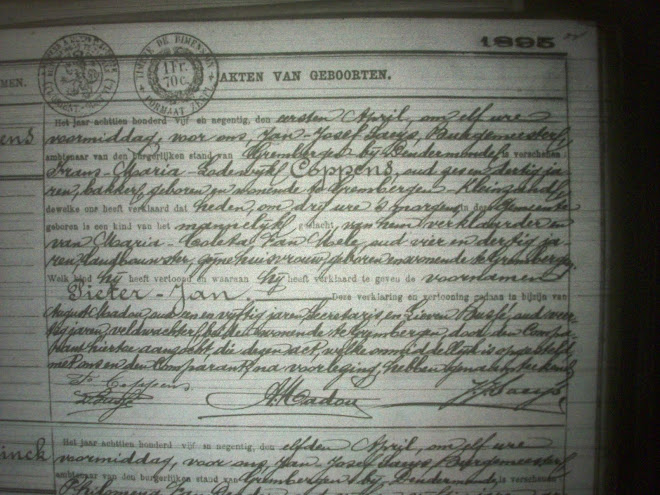 1895
TIMBRE DE DIMENSION
1 Fr. 70 c.
MEN.
AKTEN VAN GEBOORTEN.
Het jaar achttien honderd vijf en negentig, den eersten April, om elf ure
voormiddag, voor ons, Jan Josef Saeys, Burgemeester,
ens
ambtenaar van den burgerlijken stand van Grembergen bij Dendermonde is verschenen
Frans-Maria-Lodewijk Coppens, oud zes en dertig ja-
ren, bakker, geboren en wonende te Grembergen Kleinzand
dewelke ons heeft verklaard dat heden, om drij ure 's morgens in deze Gemeente
geboren is een kind van het mannelijk geslacht, van hem verklaarder en
van Maria-Coleta Van Mele, oud vier en dertig ja-
ren, landbouwster, zijne huisvrouw, geboren en wonende te Grembergen
Welk kind hij heeft vertoond en waaraan hij heeft verklaard te geven de voornamen
Pieter-Jan. Deze verklaring en vertooning gedaan in bijzijn van
August Madou, oud een en vijftig jaren Secretaris en Lieven Buysse, oud veer-
tig jaren, veldwachter, beide wonende te Grembergen, door den Compa-
rant hiertoe aangezocht, die dezen act, welke onmiddellijk is opgesteld
met ons en den Comparant, na voorlezing, hebben onderteekend
F. Coppens
A. Madou
J. J. Saeys
Het jaar achttien honderd vijf en negentig, den elfden April, om elf ure
inck
voormiddag, voor ons, Jan Josef Saeys, Burgemeester,
ambtenaar van den burgerlijken stand van Grembergen bij Dendermonde is verschenen
Philomena Van